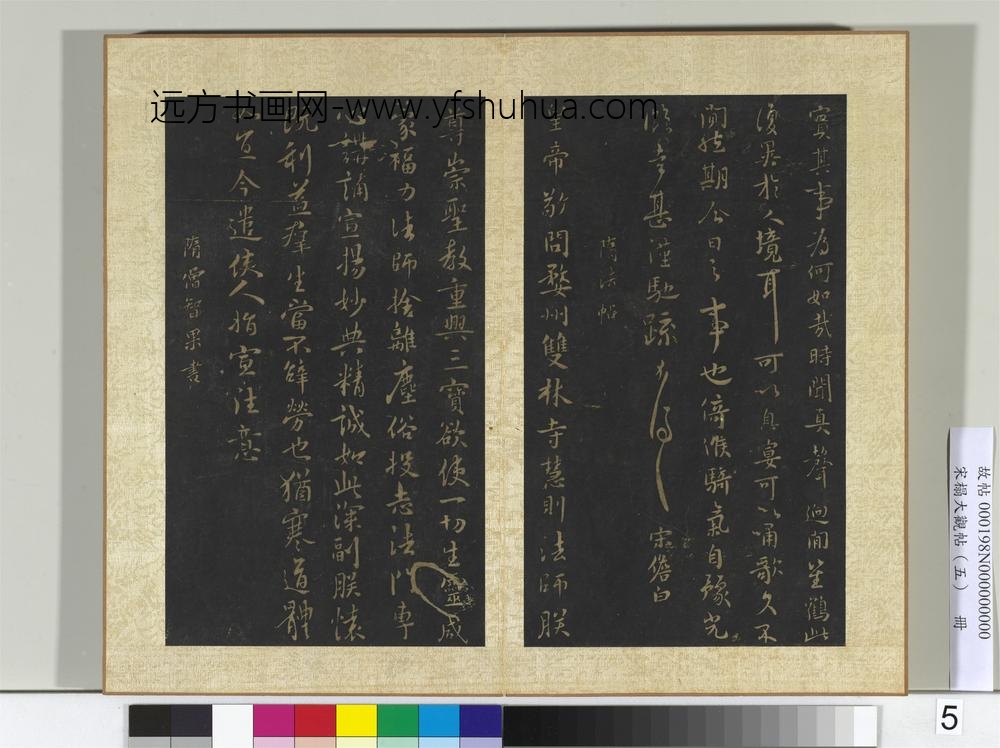 實其事為何如哉時聞真聲迥聞笙鶴此
復異於人境耳可以息宴可以誦歌久不
聞此期今日之事也倚候騎氣自豫光
臨幸甚謹馳疏
宋儋白
隋法帖
皇帝敬問婺州雙林寺慧則法師朕
尊崇聖教重興三寶欲使一切生靈咸
蒙福力法師捨離塵俗投志法門專
心講誦宣揚妙典精誠如此深副朕懷
既利益群生當不辭勞也猶寒道體
如宜今遣使人指宣往意
隋僧智果書
远方书画网-www.yfshuhua.com
故帖000198N000000000
宋榻大觀帖(五) 冊
5